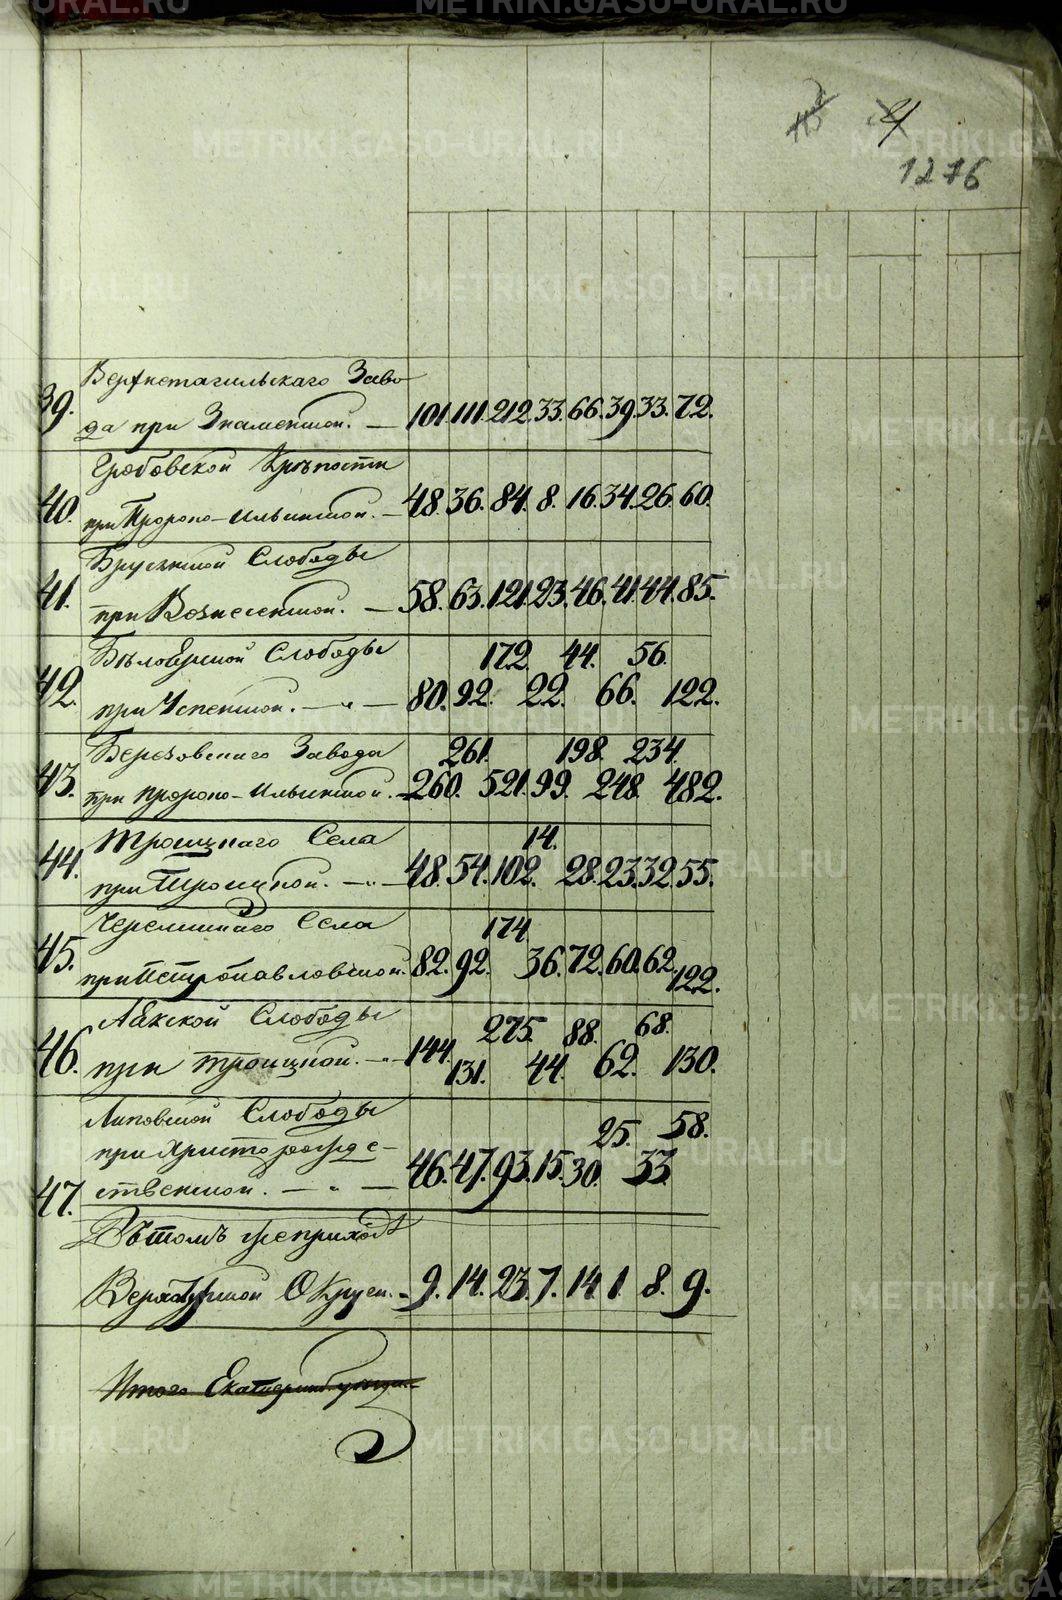 1276
39. Верхнетагильскаго Заво-
да при Знаменской. — 101. 111. 212. 33. 66. 39. 33. 72.
Гробовской Крѣпости
40. при Пророко-Ильинской. — 48. 36. 84. 8. 16. 34. 26. 60.
Бруснской Слободы
41. при Вознесенской. — 58. 63. 121. 23. 46. 41. 44. 85.
Бѣлоярской Слободы 172. 44. 56.
42. при Успенской. — „ — 80. 92. 22. 66. 122.
Березовскаго Завода 261. 198. 234.
43. при Пророко-Ильинской. — 260. 521. 99. 248. 482.
Троицкаго Села 14.
44. при Троицкой. — „ — 48. 54. 102. 28. 23. 32. 55.
Черемшкаго Села 174
45. при Петропавловской. 82. 92. 36. 72. 60. 62. 122.
Аятской Слободы 275. 88. 68.
46. при Троицкой. — „ — 144. 131. 44. 62. 130.
Липовской Слободы 25. 58.
при Христорожде-
47. ственской. — „ — 46. 47. 93. 15. 30. 33.
Въ томъ же приходѣ
Верхотурской Округи. — 9. 14. 23. 7. 14. 1. 8. 9.
Итого Екатеринбургск.
METRIKI.GASO-URAL.RU